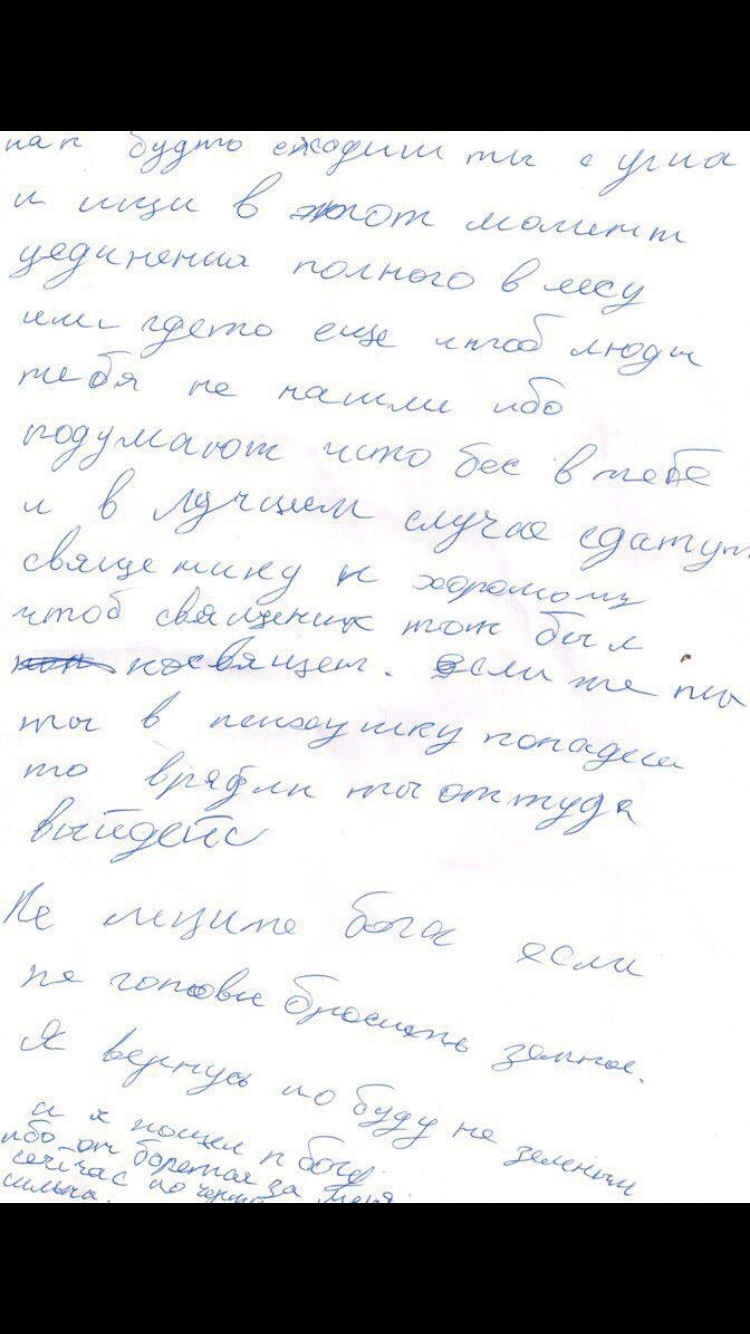 как будто сходиш ты с ума
и ищи в этот момент
уединения полного в лесу
или гдето еще чтоб люди
тебя не нашли ибо
подумают что бес в тебе
и в лучшем случае сдатут
священику и хорошому
чтоб священик тож был
посвящен. если же ты
ты в психушку попадеш
то врядли ты оттуда
выйдеш
Не ищите бога если
не готовы бросить земное.
Я вернусь но буду не земным
и я пошел к богу
ибо он борется за меня
сейчас но
сильна.